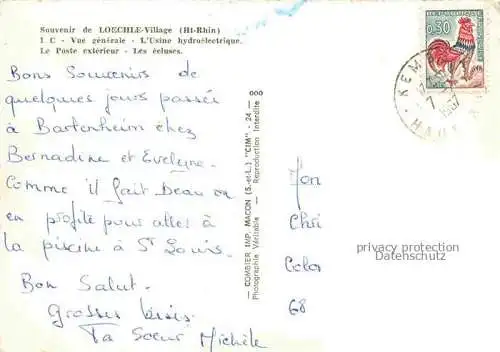 Souvenir de LOECHLE-Village (Ht-Rhin)
1 C - Vue générale - L'Usine hydroélectrique.
Le Poste extérieur - Les écluses.
Bons Souvenirs de
quelques jours passée
à Bartenheim chez
Bernadine et Evelyne.
Comme il fait beau on
en profite pour aller à
la piscine à St Louis.
Bon Salut.
Grosses bises
Ta Sœur Michèle
— COMBIER IMP. MACON (S.-et-L.) "CIM" - 24 — 000
Photographie Véritable - Reproduction Interdite
0,30
KEM
1967
HAU
Mon
Chri
Color
68
privacy protection
Datenschutz